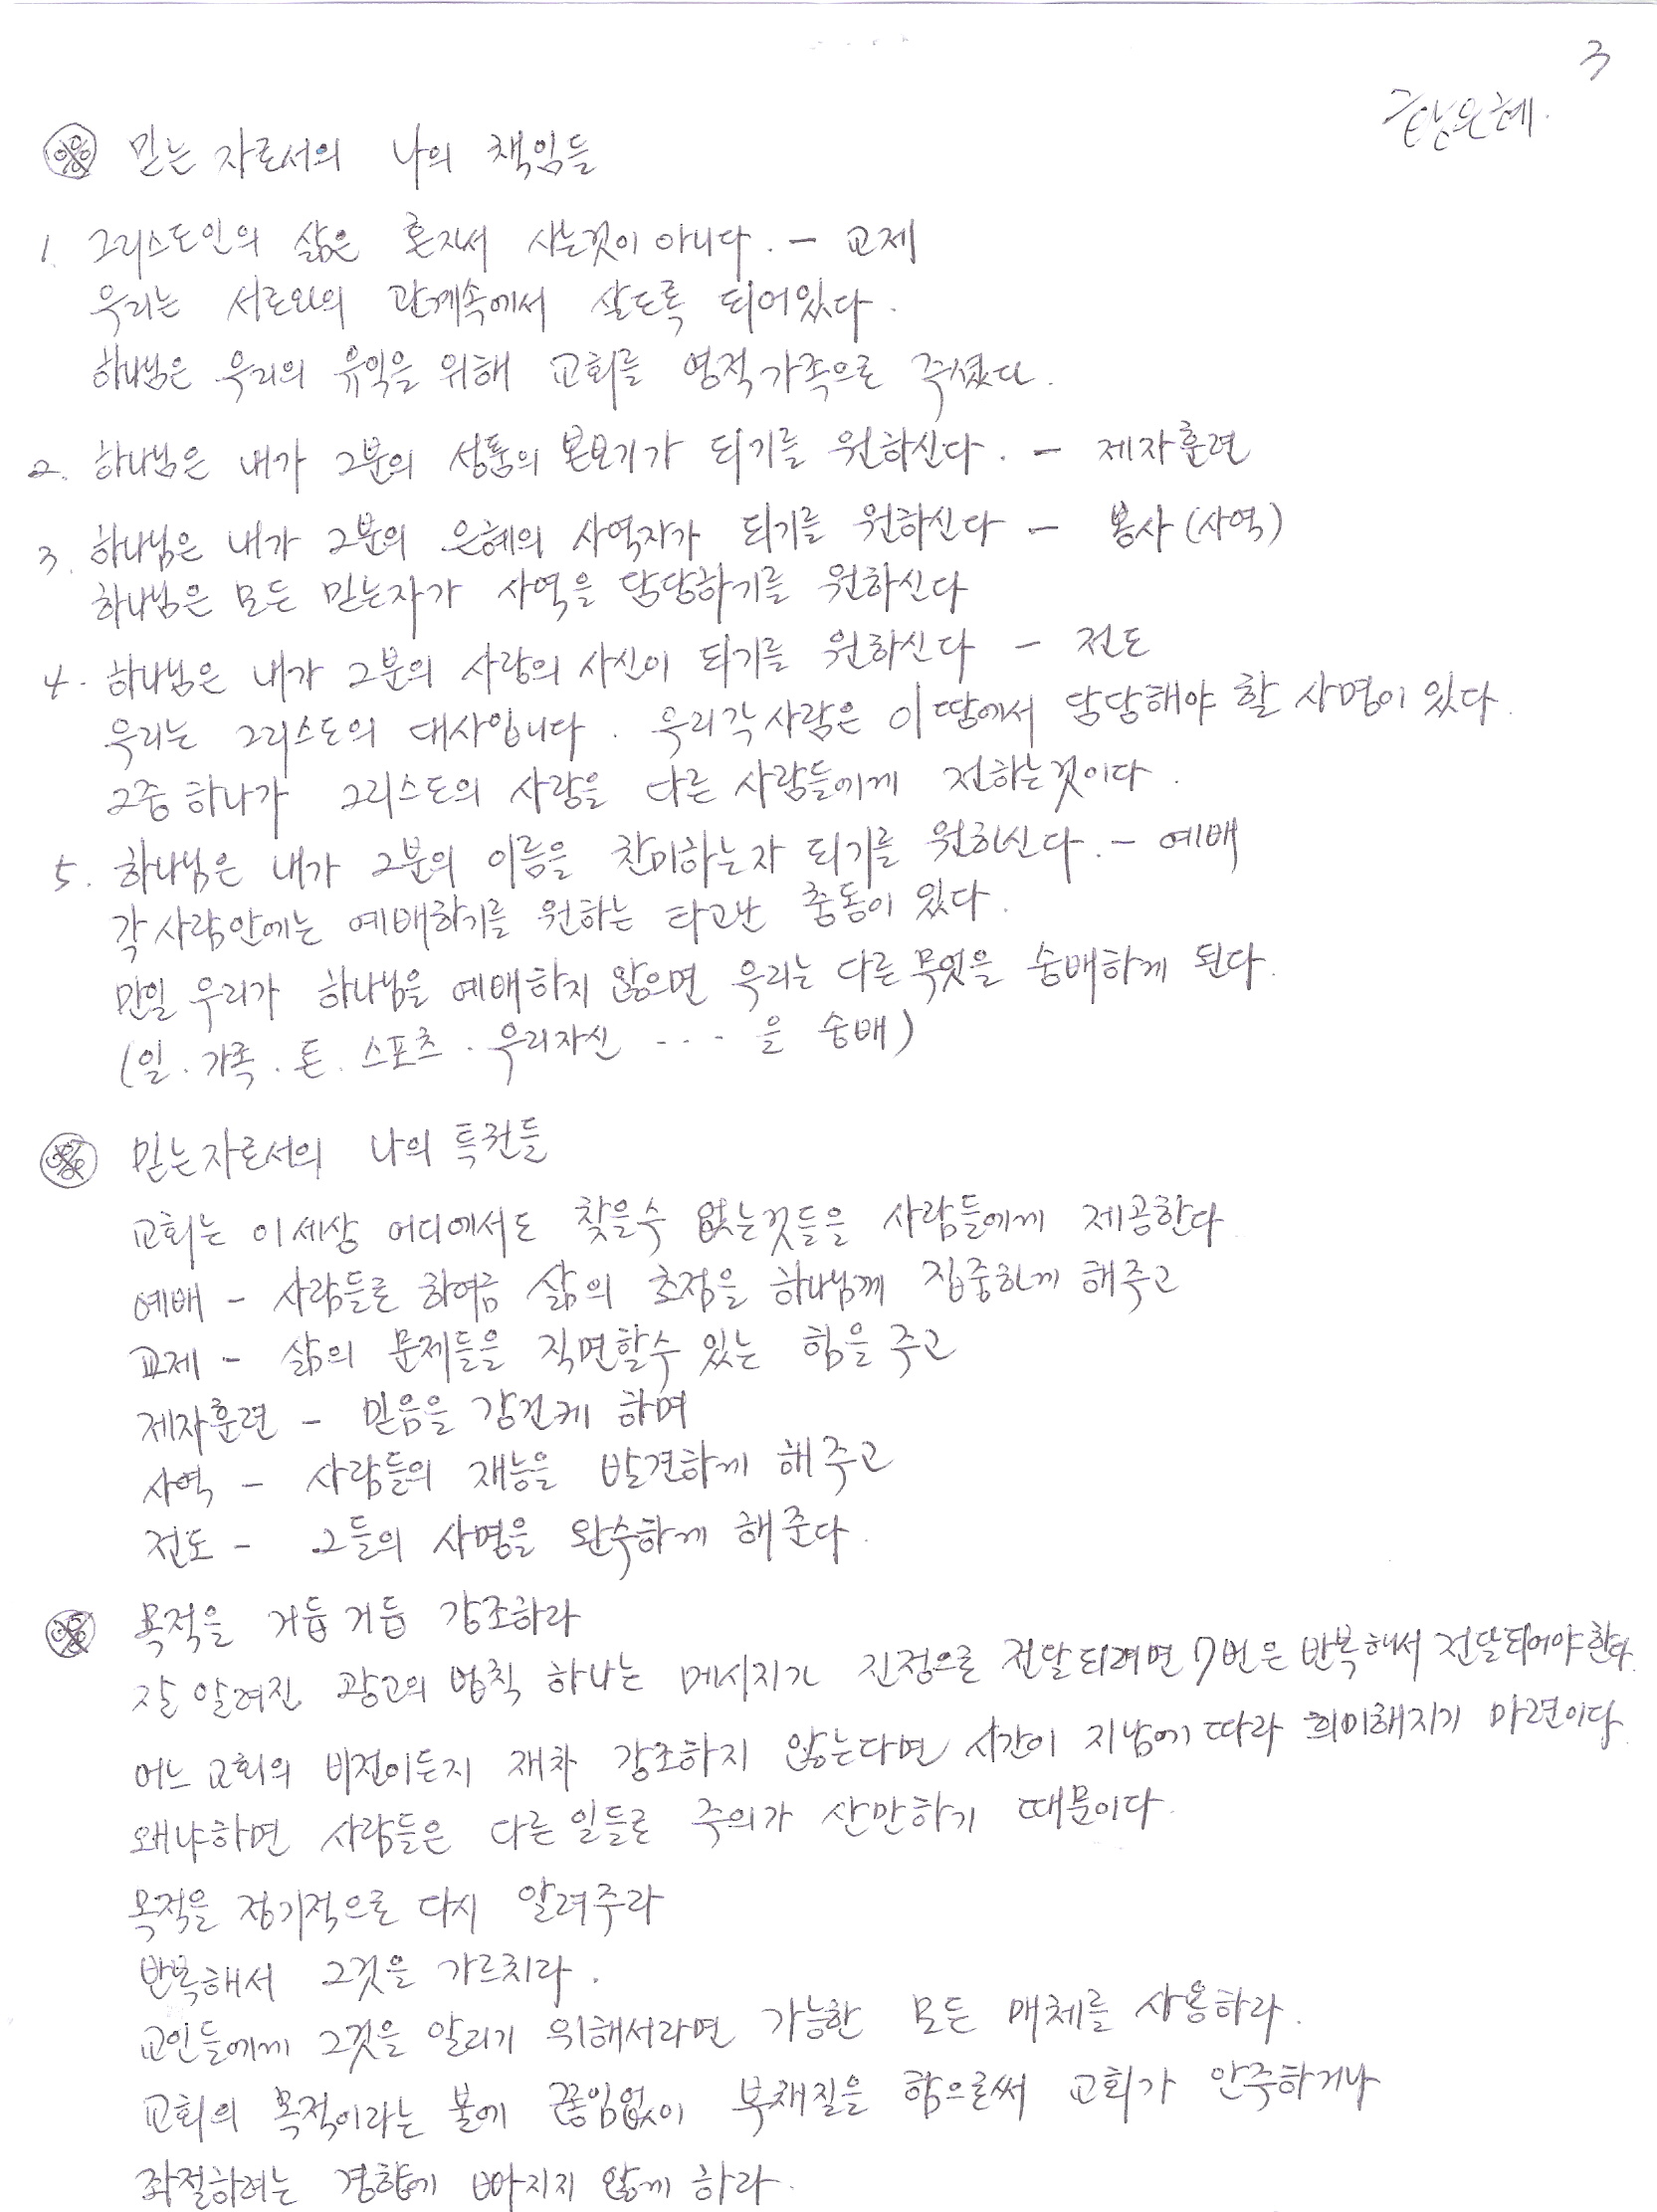 3
※ 믿는 자로서의 나의 책임들
1. 그리스도인의 삶은 혼자서 사는것이 아니다. - 교제
우리는 서로와의 관계속에서 살도록 되어있다.
하나님은 우리의 유익을 위해 교회를 영적가족으로 주셨다.
2. 하나님은 내가 그분의 성품의 본보기가 되기를 원하신다. - 제자훈련
3. 하나님은 내가 그분의 은혜의 사역자가 되기를 원하신다 - 봉사(사역)
하나님은 모든 믿는자가 사역을 담당하기를 원하신다
4. 하나님은 내가 그분의 사랑의 사신이 되기를 원하신다 - 전도
우리는 그리스도의 대사입니다. 우리각사람은 이땅에서 담당해야 할 사명이 있다.
그중 하나가 그리스도의 사랑을 다른 사람들에게 전하는것이다.
5. 하나님은 내가 그분의 이름을 찬미하는자 되기를 원하신다. - 예배
각 사람안에는 예배하기를 원하는 타고난 충동이 있다.
만일 우리가 하나님을 예배하지 않으면 우리는 다른 무엇을 숭배하게 된다.
(일. 가족. 돈. 스포츠. 우리자신 ... 을 숭배)
※ 믿는자로서의 나의 특권들
교회는 이세상 어디에서도 찾을수 없는것들을 사람들에게 제공한다
예배 - 사람들로 하여금 삶의 초점을 하나님께 집중하게 해주고
교제 - 삶의 문제들을 직면할수 있는 힘을 주고
제자훈련 - 믿음을 강건케 하며
사역 - 사람들의 재능을 발견하게 해주고
전도 - 그들의 사명을 완수하게 해준다.
※ 목적을 거듭거듭 강조하라
잘 알려진 광고의 법칙 하나는 메시지가 진정으로 전달되려면 7번은 반복해서 전달되어야한다.
어느 교회의 비전이든지 재차 강조하지 않는다면 시간이 지남에 따라 희미해지기 마련이다.
왜냐하면 사람들은 다른일들로 주의가 산만하기 때문이다.
목적을 정기적으로 다시 알려주라
반복해서 그것을 가르치라.
교인들에게 그것을 알리기 위해서라면 가능한 모든 매체를 사용하라.
교회의 목적이라는 불에 끊임없이 부채질을 함으로써 교회가 안주하거나
좌절하려는 경향에 빠지지 않게 하라.